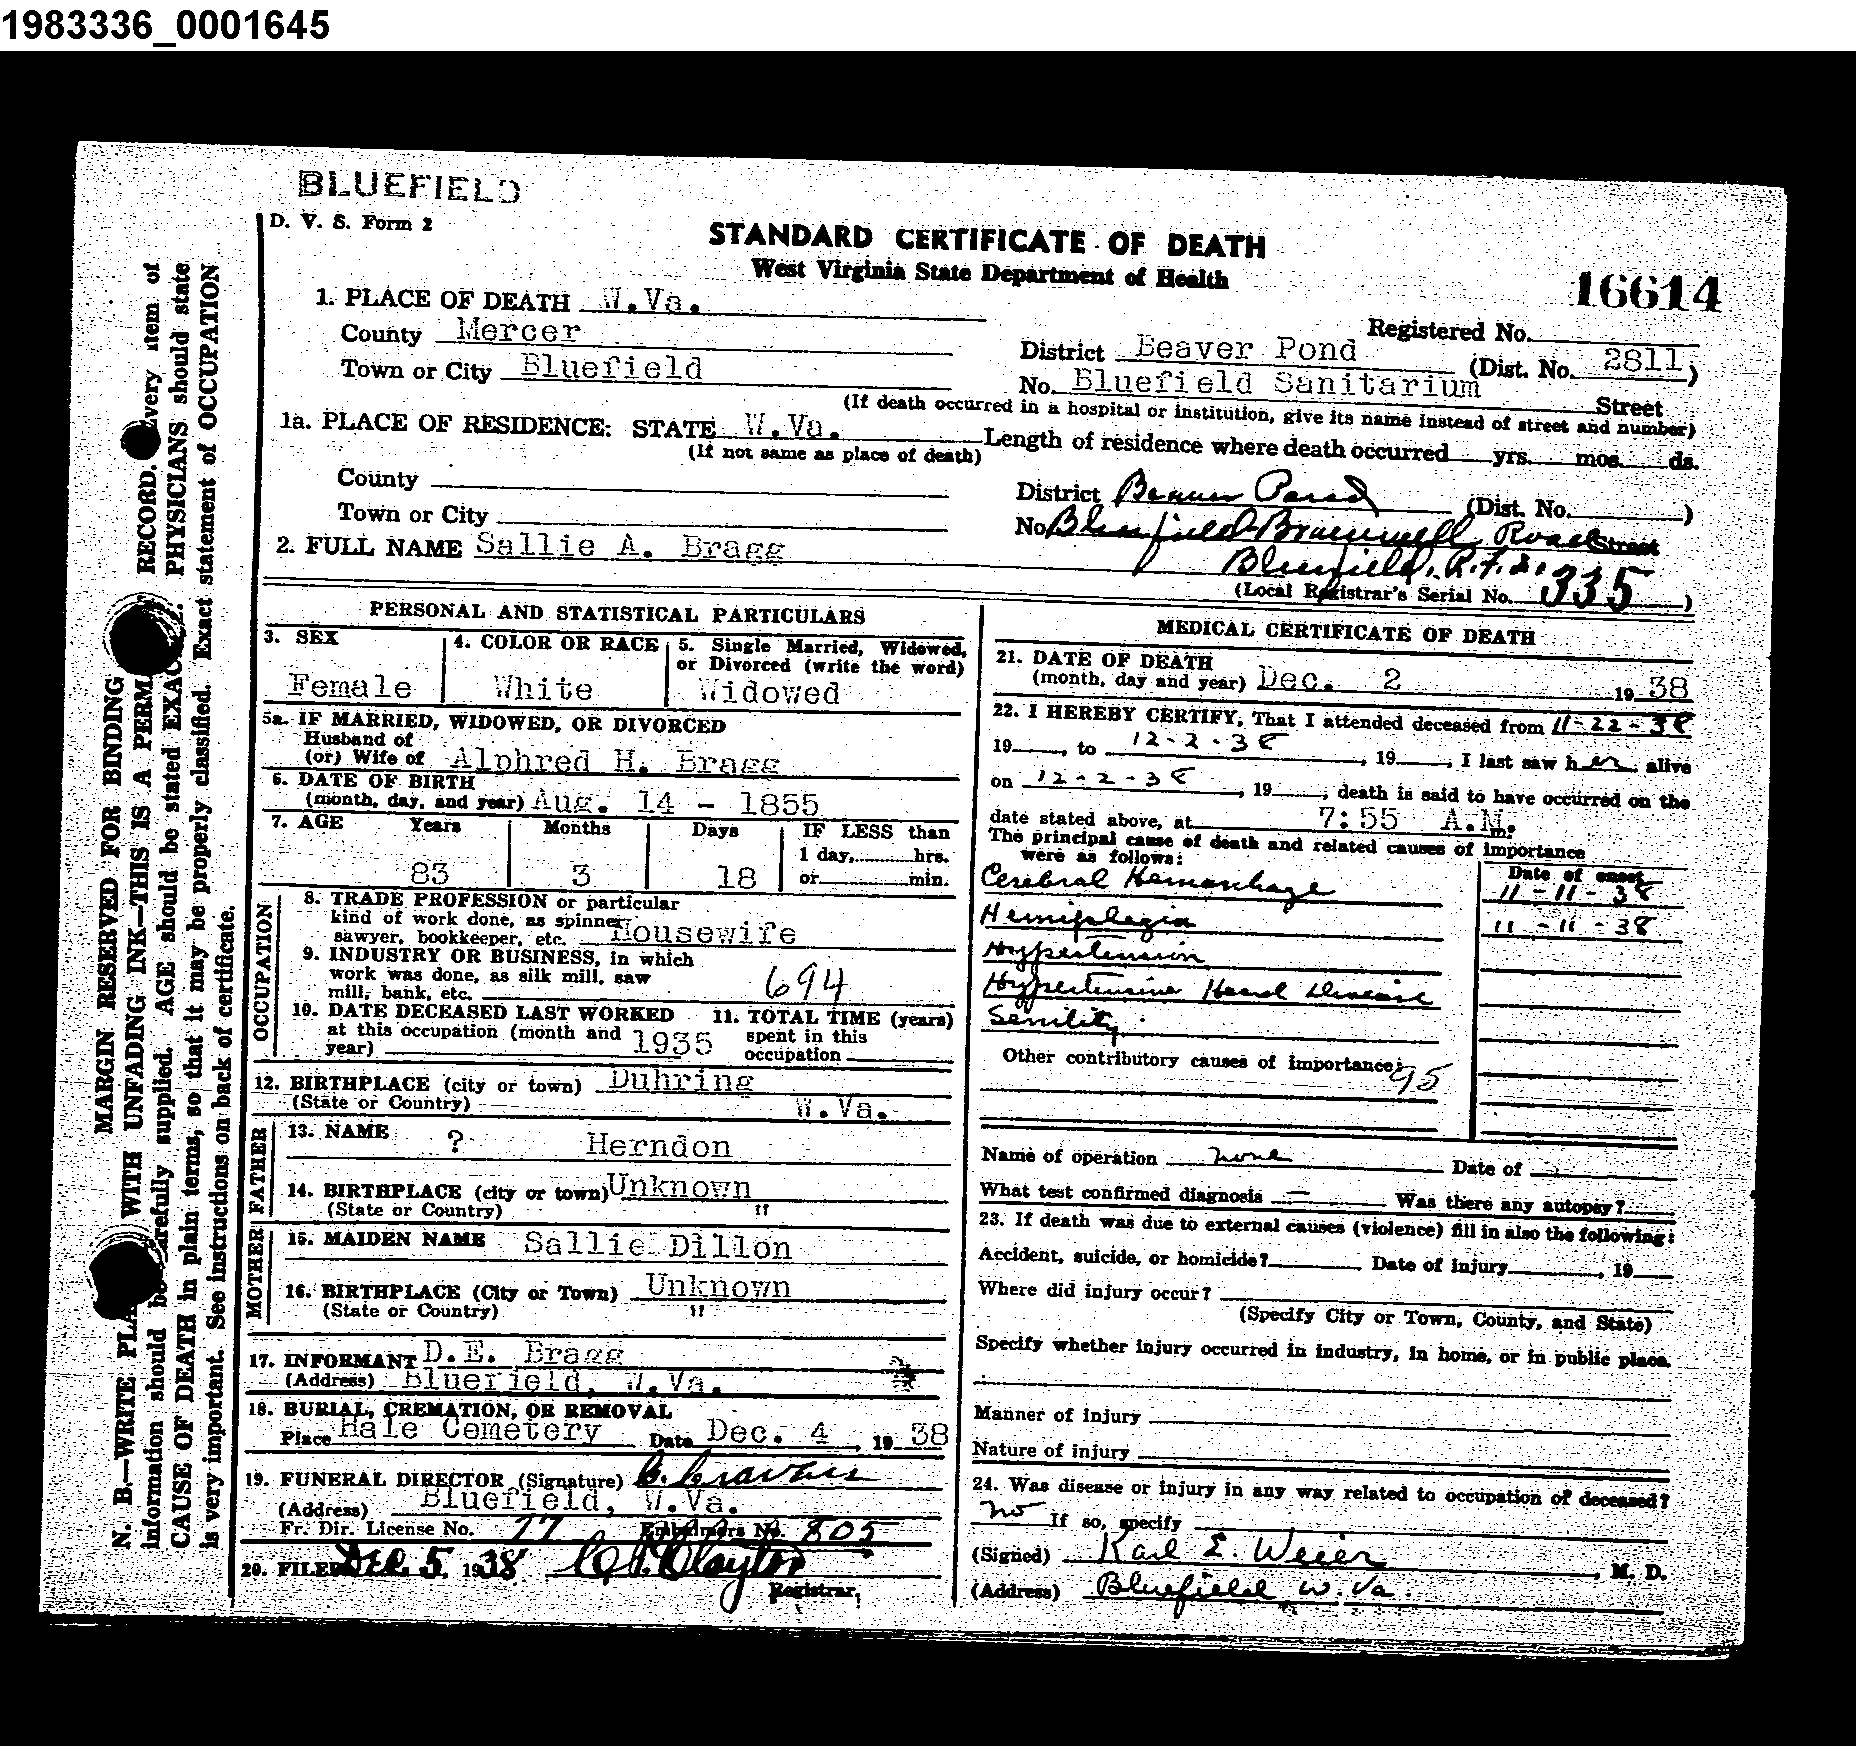 1983336_0001645
BLUEFIELD
D. V. S. Form 2
STANDARD CERTIFICATE OF DEATH
West Virginia State Department of Health
16614
1. PLACE OF DEATH W.Va.
Registered No.
County Mercer
District Beaver Pond (Dist. No. 2811)
Town or City Bluefield
No. Bluefield Sanitarium Street
(If death occurred in a hospital or institution, give its name instead of street and number)
1a. PLACE OF RESIDENCE: STATE W.Va.
Length of residence where death occurred yrs. mos. ds.
(If not same as place of death)
County
District Beaver Pond (Dist. No. )
Town or City
No Bluefield Bramwell Road Street
2. FULL NAME Sallie A. Bragg
Bluefield, R.F.D.
(Local Registrar's Serial No. 335)
PERSONAL AND STATISTICAL PARTICULARS
3. SEX
Female
4. COLOR OR RACE
White
5. Single Married, Widowed,
or Divorced (write the word)
Widowed
5a. IF MARRIED, WIDOWED, OR DIVORCED
Husband of
(or) Wife of Alphred H. Bragg
6. DATE OF BIRTH
(month, day, and year) Aug. 14 - 1855
7. AGE Years Months Days IF LESS than
1 day, hrs.
83 3 18 or min.
OCCUPATION
8. TRADE PROFESSION or particular
kind of work done, as spinner,
sawyer, bookkeeper, etc. Housewife
9. INDUSTRY OR BUSINESS, in which
work was done, as silk mill, saw
mill, bank, etc. 694
10. DATE DECEASED LAST WORKED
at this occupation (month and
year) 1935
11. TOTAL TIME (years)
spent in this
occupation
12. BIRTHPLACE (city or town) Duhring
(State or Country) W.Va.
FATHER
13. NAME ? Herndon
14. BIRTHPLACE (city or town) Unknown
(State or Country) "
MOTHER
15. MAIDEN NAME Sallie Dillon
16. BIRTHPLACE (City or Town) Unknown
(State or Country) "
17. INFORMANT D.E. Bragg
(Address) Bluefield, W.Va.
18. BURIAL, CREMATION, OR REMOVAL
Place Hale Cemetery Date Dec. 4, 19 38
19. FUNERAL DIRECTOR (Signature)
(Address) Bluefield, W.Va.
Fr. Dir. License No. 77 Embalmers No. 805
20. FILED DEC. 5, 1938 Clayton
Registrar,
MEDICAL CERTIFICATE OF DEATH
21. DATE OF DEATH
(month, day and year) Dec. 2 19 38
22. I HEREBY CERTIFY, That I attended deceased from 11-22-38
19 , to 12-2-38 , 19 , I last saw her alive
on 12-2-38 , 19 , death is said to have occurred on the
date stated above, at 7:55 A.M. m.
The principal cause of death and related causes of importance
were as follows:
Date of onset
Cerebral Hemorrhage 11-11-38
Hemiplegia 11-11-38
Hypertension
Hypertensive Heart Disease
Senility
Other contributory causes of importance:
95
Name of operation none Date of
What test confirmed diagnosis — Was there any autopsy?
23. If death was due to external causes (violence) fill in also the following:
Accident, suicide, or homicide? Date of injury , 19
Where did injury occur?
(Specify City or Town, County, and State)
Specify whether injury occurred in industry, in home, or in public place.
Manner of injury
Nature of injury
24. Was disease or injury in any way related to occupation of deceased?
no If so, specify
(Signed) Karl E. Weier, M. D.
(Address) Bluefield W. Va.
MARGIN RESERVED FOR BINDING
N. B.—WRITE WITH UNFADING INK—THIS IS A RECORD. Every item of
information should be carefully supplied. AGE should be stated PHYSICIANS should state
CAUSE OF DEATH in plain terms, so that it may be properly classified. Exact statement of OCCUPATION
is very important. See instructions on back of certificate.